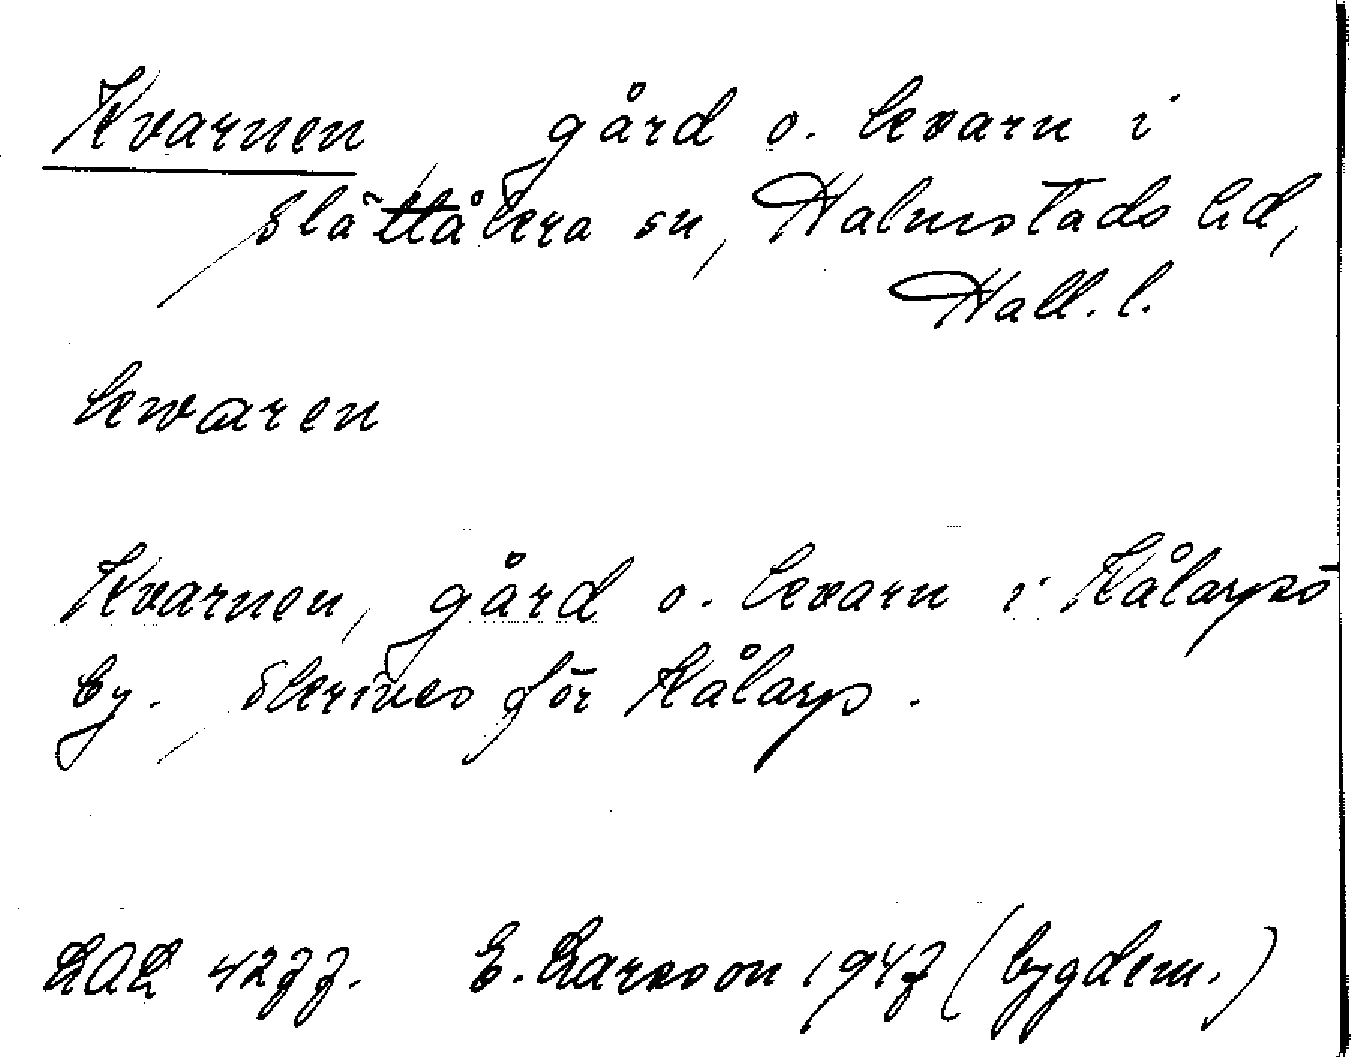 Kvarnen, gård o. kvarn i
Slättåkra sn, Halmstads hd,
Hall. l.
kwaren
Kvarnen, gård o. kvarn i Kålarps
by. Skrives för Kålarp.
LAL 4277. E. Larsson 1947 (bygdem.)